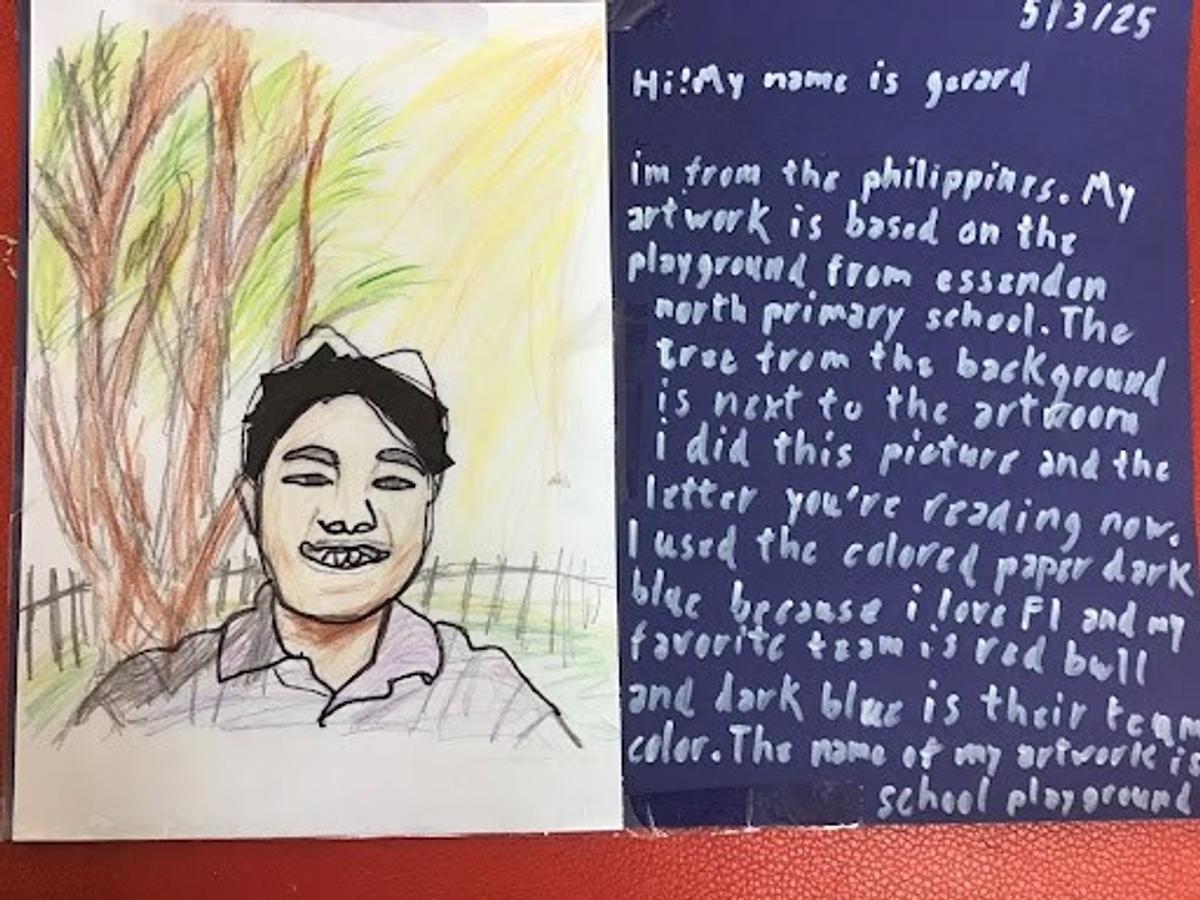 5/3/25
Hi!My name is gerard
im from the philippines. My
artwork is based on the
playground from essendon
north primary school. The
tree from the background
is next to the artroom
i did this picture and the
letter you're reading now.
I used the colored paper dark
blue because i love F1 and my
favorite team is red bull
and dark blue is their team
color. The name of my artwork is
school playground